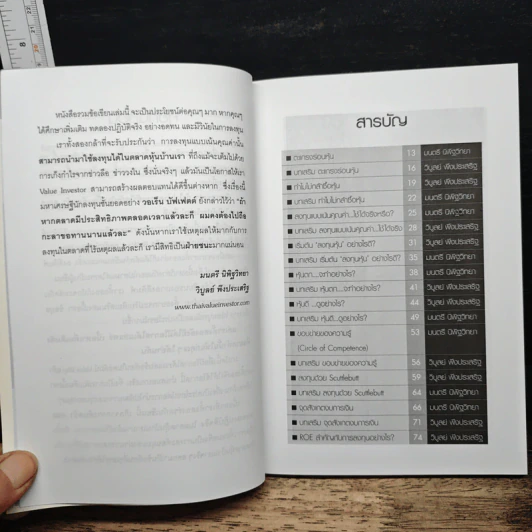 หนังสือรวมข้อเขียนเล่มนี้ จะเป็นประโยชน์ต่อคุณๆ มาก หากคุณๆ
ได้ศึกษาเพิ่มเติม ทดลองปฏิบัติจริง อย่างอดทน และมีวินัยในการลงทุน
เราทั้งสองกล้าที่จะรับประกันว่า การลงทุนแบบเน้นคุณค่านั้น
สามารถนำมาใช้ลงทุนได้ในตลาดหุ้นบ้านเรา ที่ถึงแม้จะเต็มไปด้วย
การเก็งกำไรจากข่าวลือ ข่าววงใน ซึ่งนั่นจริงๆ แล้วมันเป็นโอกาสให้เรา
Value Investor สามารถสร้างผลตอบแทนได้ดีขึ้นต่างหาก ซึ่งเรื่องนี้
มหาเศรษฐีนักลงทุนชั้นยอดอย่าง วอเร็น บัฟเฟตต์ ยังกล่าวไว้ว่า "ถ้า
หากตลาดมีประสิทธิภาพตลอดเวลาแล้วละก็ ผมคงต้องไปถือ
กะลาขอทานนานแล้วละ" ดังนั้นหากเราใช้เหตุผลให้มากกับการ
ลงทุนในตลาดที่ไร้เหตุผลแล้วละก็ เรามีสิทธิเป็นฝ่ายชนะมากแน่นอน
มนตรี นิพิฐวิทยา
วิบูลย์ พึงประเสริฐ
www.thaivalueinvestor.com
สารบัญ
■ ตลาดจรอบหุ้น 13 มนตรี นิพิฐวิทยา
■ บทเสริม ตลาดจรอบหุ้น 16 วิบูลย์ พึงประเสริฐ
■ ทำไมไม่กล้าซื้อหุ้น 19 วิบูลย์ พึงประเสริฐ
■ บทเสริม ทำไมไม่กล้าซื้อหุ้น 22 มนตรี นิพิฐวิทยา
■ ลงทุนแบบเน้นคุณค่า...ใช้ได้จริงหรือ? 25 มนตรี นิพิฐวิทยา
■ บทเสริม ลงทุนแบบเน้นคุณค่า...ใช้ได้จริง 28 วิบูลย์ พึงประเสริฐ
■ เริ่มต้น "ลงทุนหุ้น" อย่างไรดี? 31 วิบูลย์ พึงประเสริฐ
■ บทเสริม เริ่มต้น "ลงทุนหุ้น" อย่างไรดี? 35 มนตรี นิพิฐวิทยา
■ หุ้นตก...จะทำอย่างไร? 38 มนตรี นิพิฐวิทยา
■ บทเสริม หุ้นตก...จะทำอย่างไร? 41 วิบูลย์ พึงประเสริฐ
■ หุ้นดี...ดูอย่างไร? 44 วิบูลย์ พึงประเสริฐ
■ บทเสริม หุ้นดี...ดูอย่างไร? 49 มนตรี นิพิฐวิทยา
■ ขอบข่ายของความรู้ 53 มนตรี นิพิฐวิทยา
(Circle of Competence)
■ บทเสริม ขอบข่ายของความรู้ 56 วิบูลย์ พึงประเสริฐ
■ ลงทุนด้วย Scuttlebutt 59 วิบูลย์ พึงประเสริฐ
■ บทเสริม ลงทุนด้วย Scuttlebutt 64 มนตรี นิพิฐวิทยา
■ จุดสังเกตงบการเงิน 66 มนตรี นิพิฐวิทยา
■ บทเสริม จุดสังเกตงบการเงิน 71 วิบูลย์ พึงประเสริฐ
■ ROE สำคัญกับการลงทุนอย่างไร? 74 วิบูลย์ พึงประเสริฐ